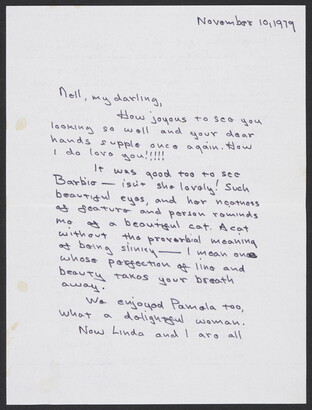 November 10, 1979
Nell, my darling,
How joyous to see you
looking so well and your dear
hands supple once again. How
I do love you!!!!!
It was good too to see
Barbie — isn't she lovely! Such
beautiful eyes, and her neatness
of feature and person reminds
me of a beautiful cat. A cat
without the proverbial meaning
of being slinky — I mean one
whose perfection of line and
beauty takes your breath
away.
We enjoyed Pamela too,
what a delightful woman.
Now Linda and I are all